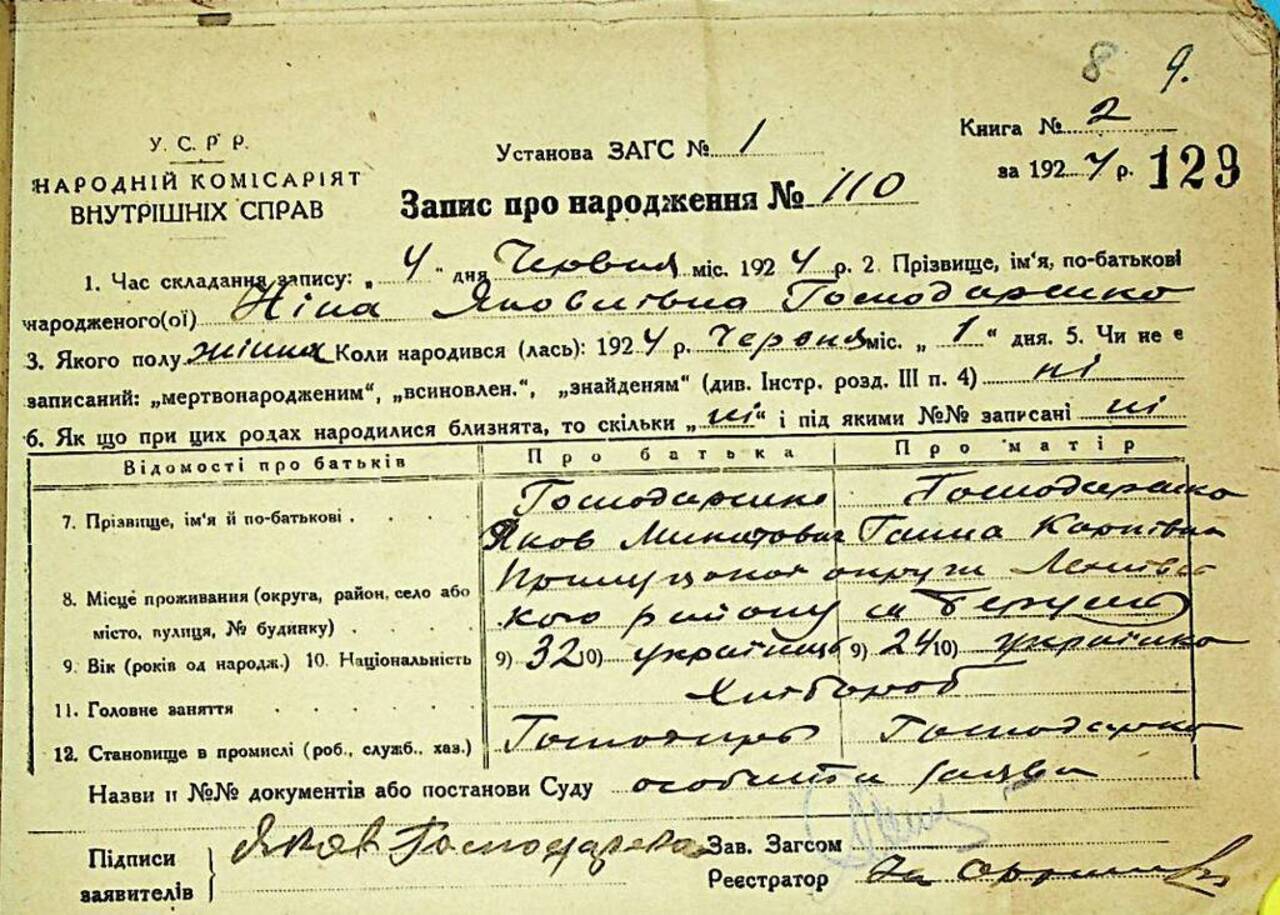 8 9.
У. С. Р Р.
НАРОДНІЙ КОМІСАРІЯТ
ВНУТРІШНІХ СПРАВ
Установа ЗАГС № 1
Книга № 2
за 1924 р. 129
Запис про народження № 110
1. Час складання запису: „ 4 “ дня Червня міс. 1924 р. 2. Прізвище, ім'я, по-батькові
народженого(ої) Ніна Яковлівна Господаренко
3. Якого полу жіноч Коли народився (лась): 1924 р. Червня міс. „ 1 “ дня. 5. Чи не є
записаний: „мертвонародженим“, „всиновлен.“, „знайденям“ (див. Інстр. розд. III п. 4) ні
6. Як що при цих родах народилися близнята, то скільки „ ні “ і під якими №№ записані ні
Відомості про батьків Про батька Про матір
7. Прізвище, ім'я й по-батькові . . . . Господаренко Господаренко
Яков Ганна Карпівна
8. Місце проживання (округа, район, село або округи
місто, вулиця, № будинку) . . . . району
9. Вік (років од народж.) 10. Національність 9) 32 10) українець 9) 24 10) українка
11. Головне заняття . . . . . Хлібороб
12. Становище в промислі (роб., служб., хаз.) Господарь Господарка
Назви и №№ документів або постанови Суду особиста заява
Підписи
заявителів
Яков Господаренко
Зав. Загсом
Реєстратор